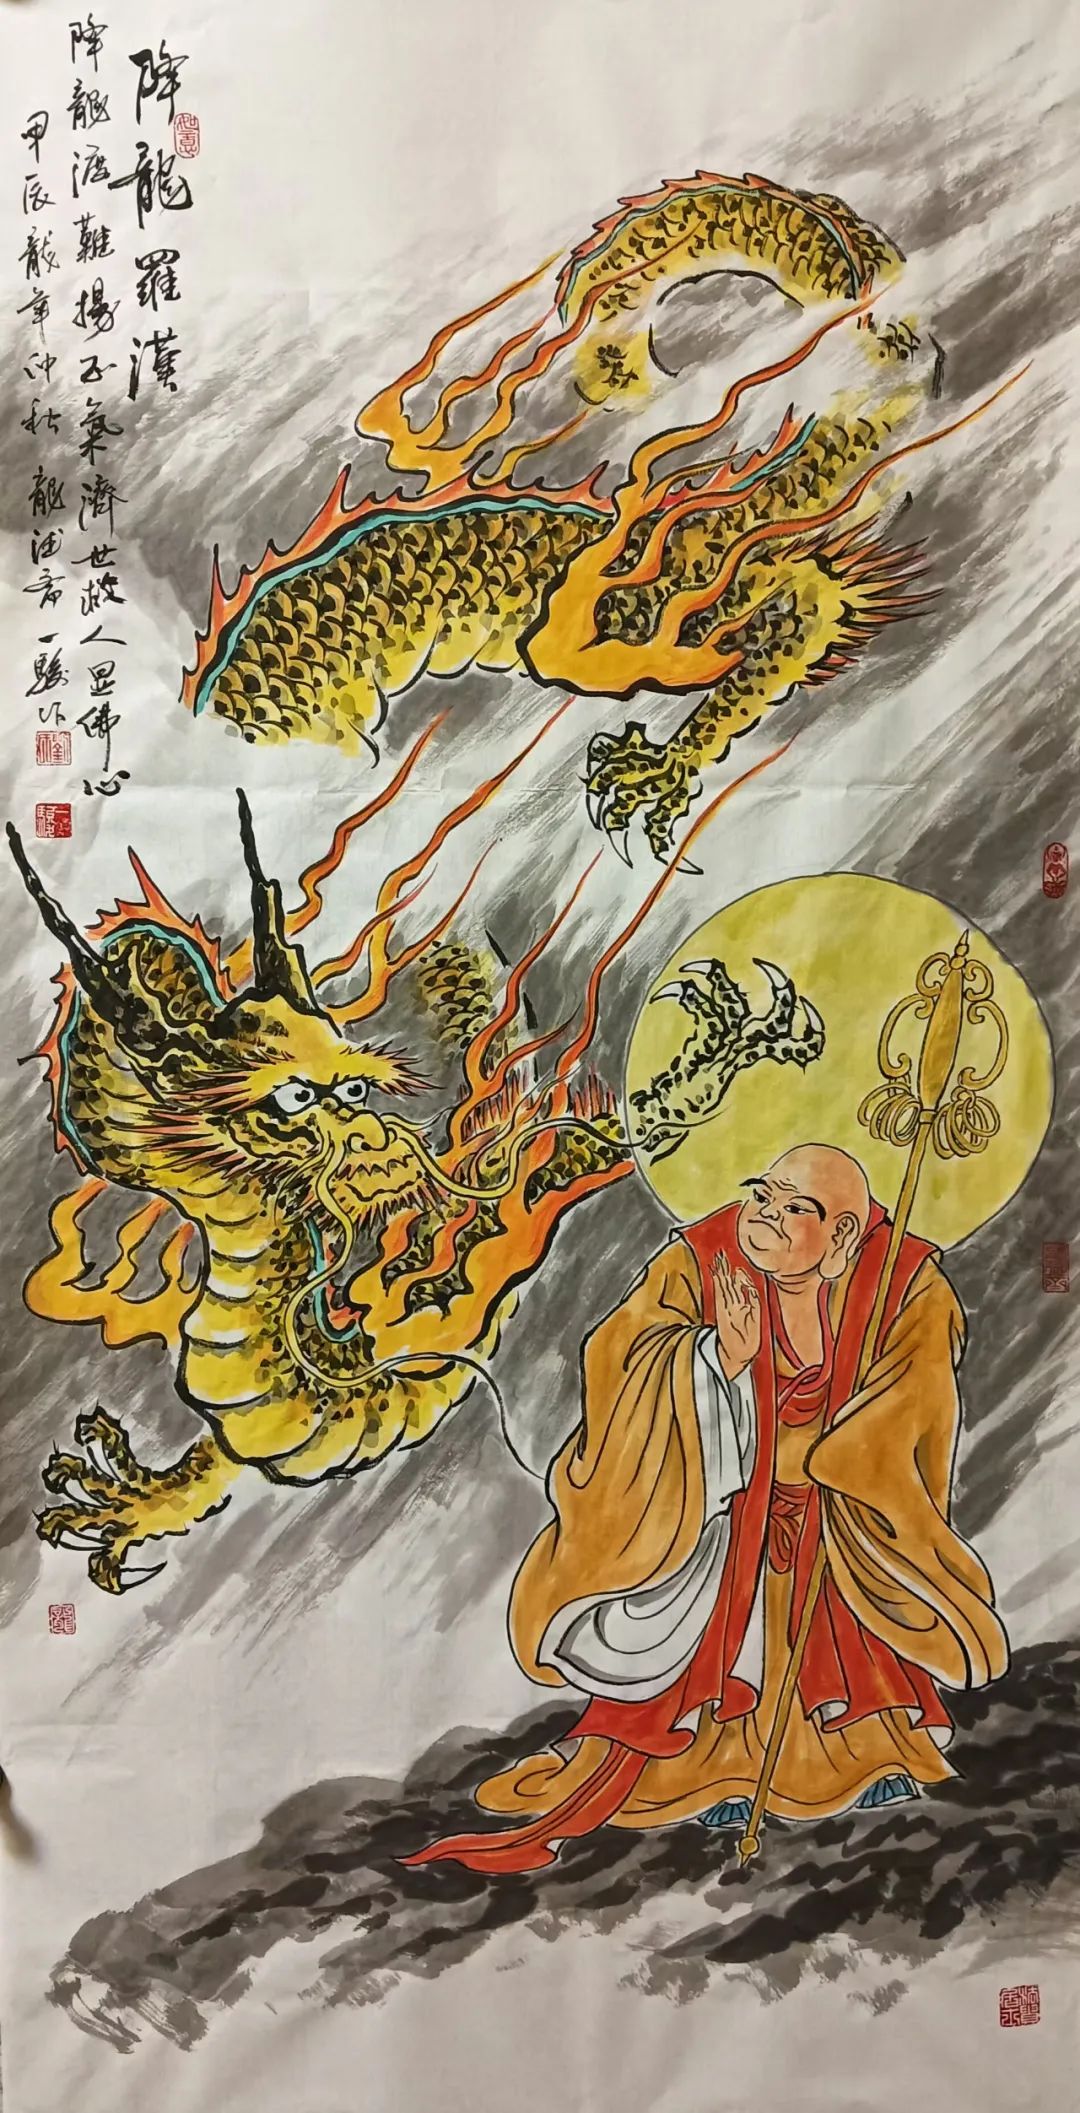 降龍羅漢
如意
降龍渡難揚正氣濟世救人显佛心
甲辰龍年仲秋龍涎斋一駿作